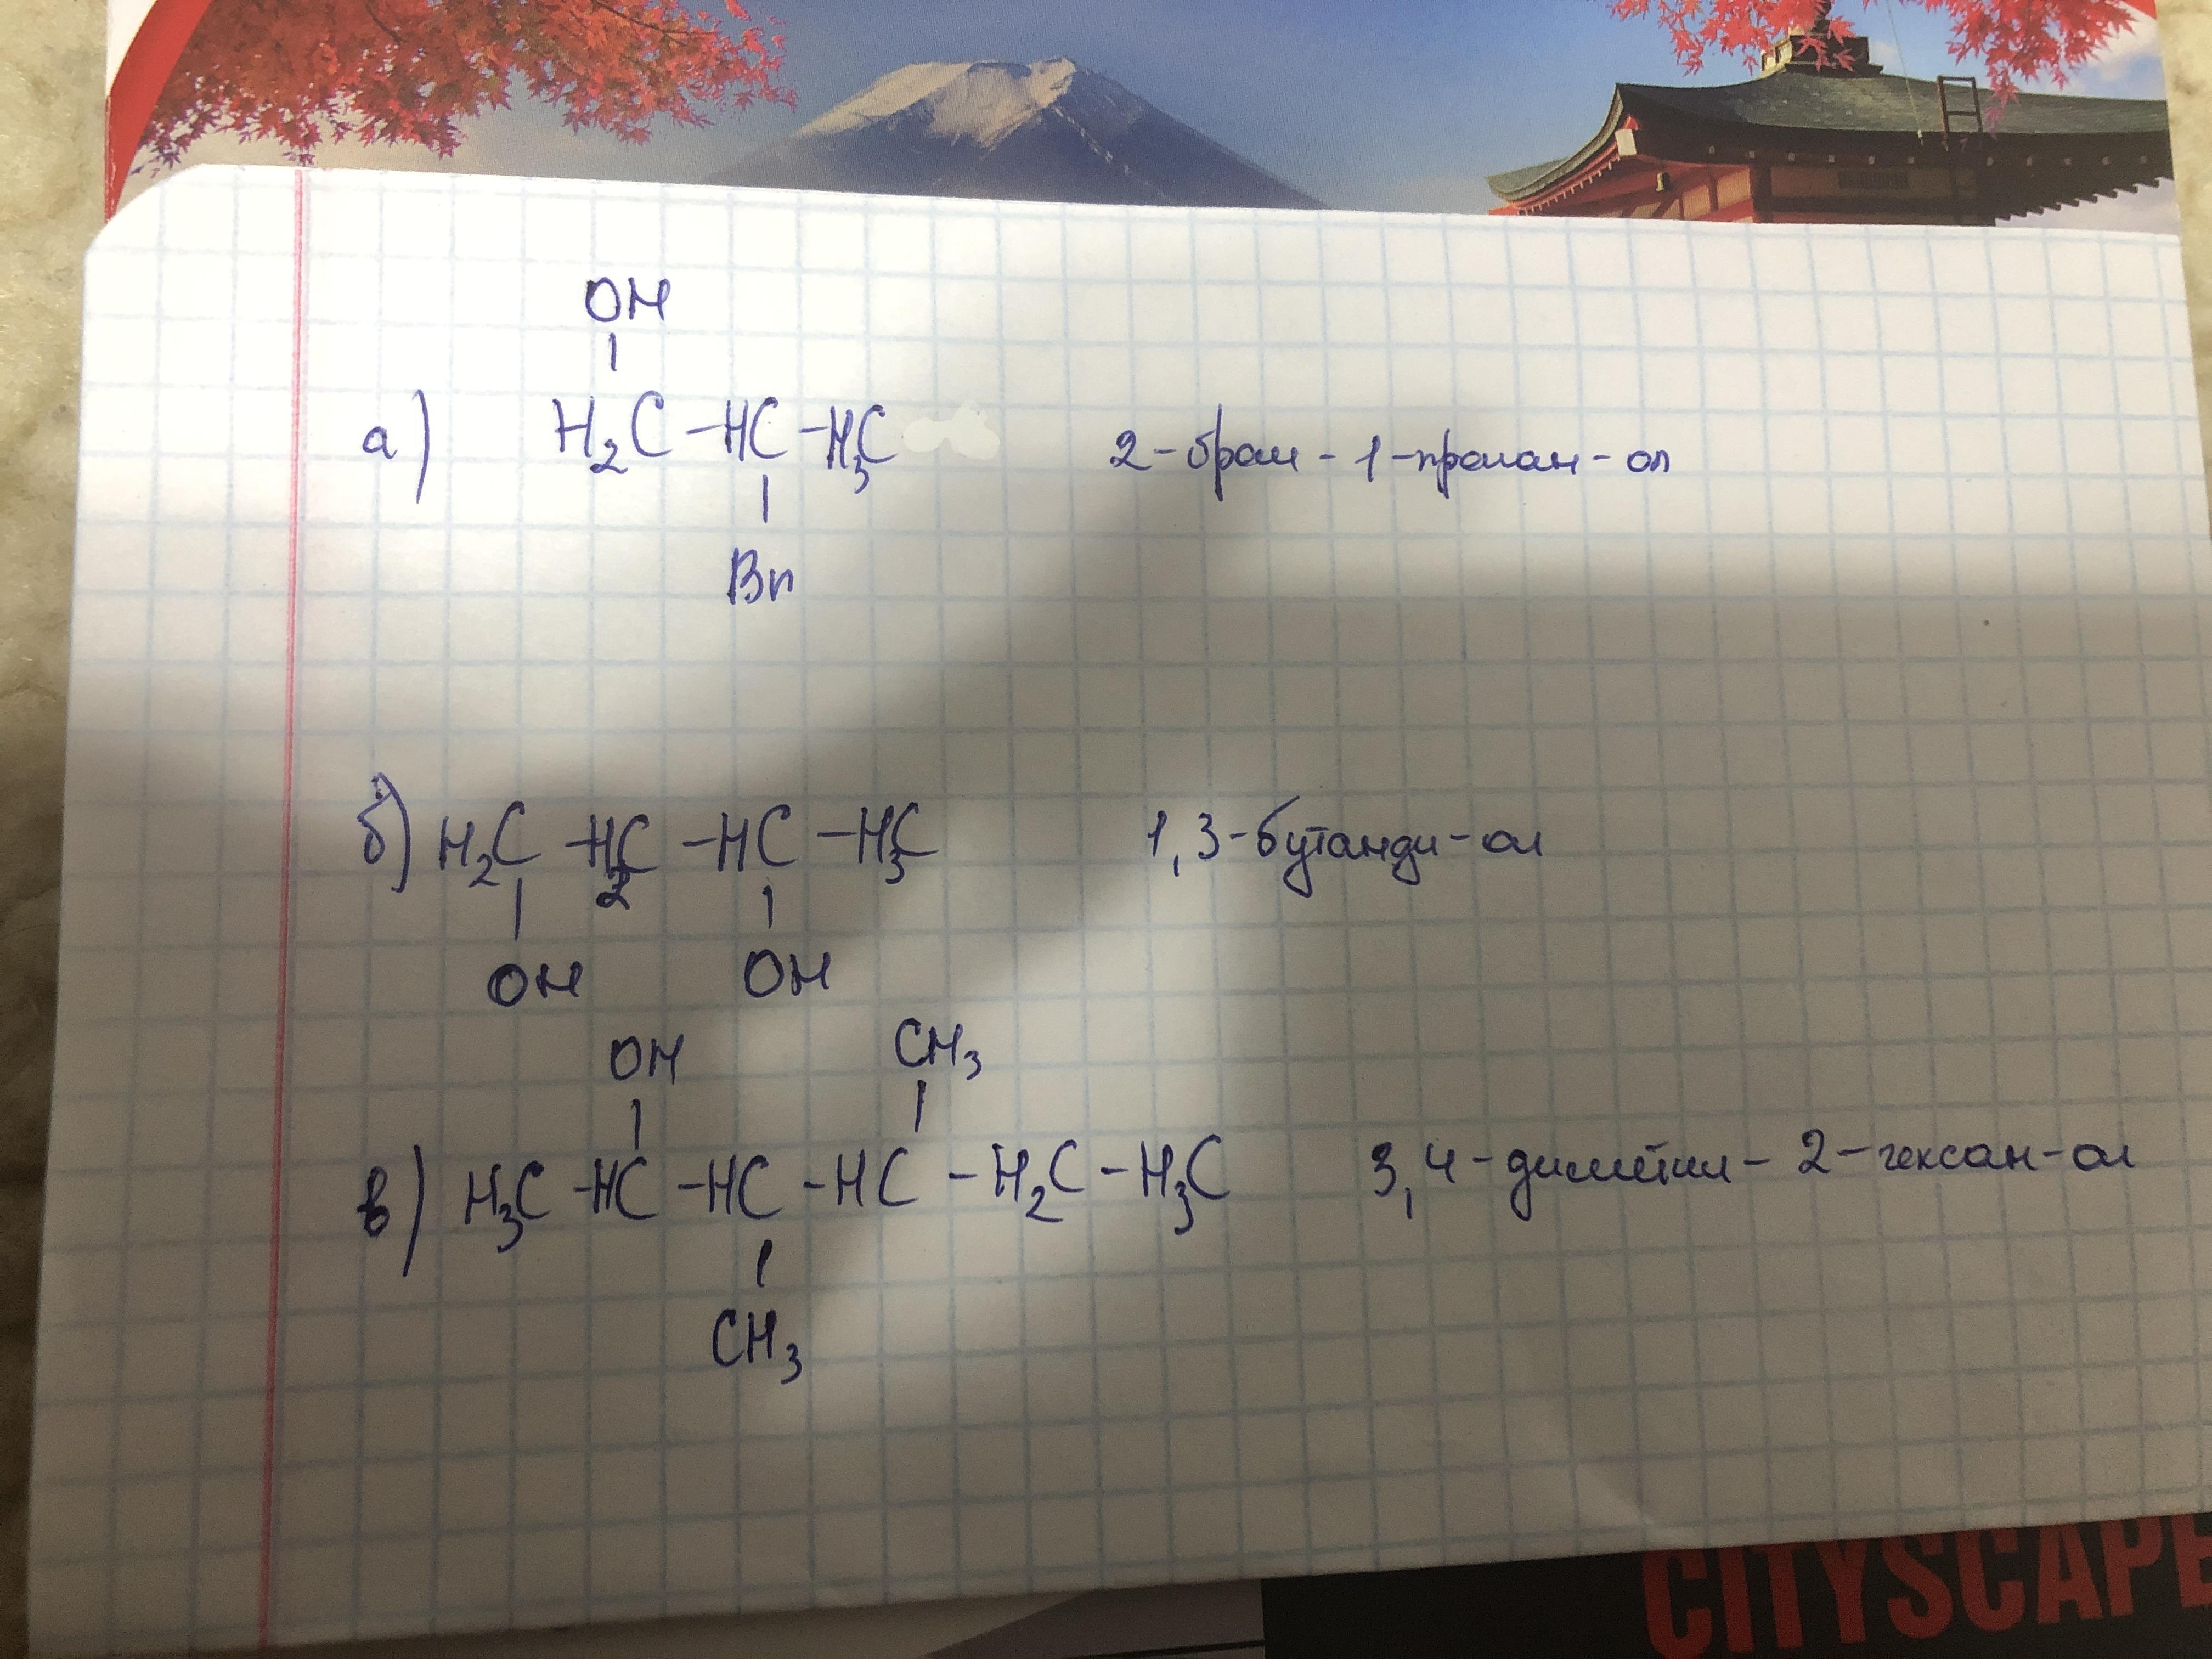 OH
|
а) H₂C - HC - H₃C 2-бром-1-пропан-ол
|
Br
б) H₂C - H₂C - HC - H₃C 1,3-бутанди-ол
| |
OH OH
OH CH₃
| |
в) H₃C - HC - HC - HC - H₂C - H₃C 3,4-диметил-2-гексан-ол
|
CH₃
CITYSCAPE